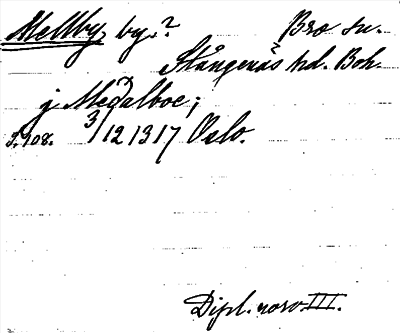 Mellby, by.? Bro sn.
Stångenäs hd. Boh.
j Medalboe;
S. 108. 3/12 1317 Oslo.
Dipl. norv. III.